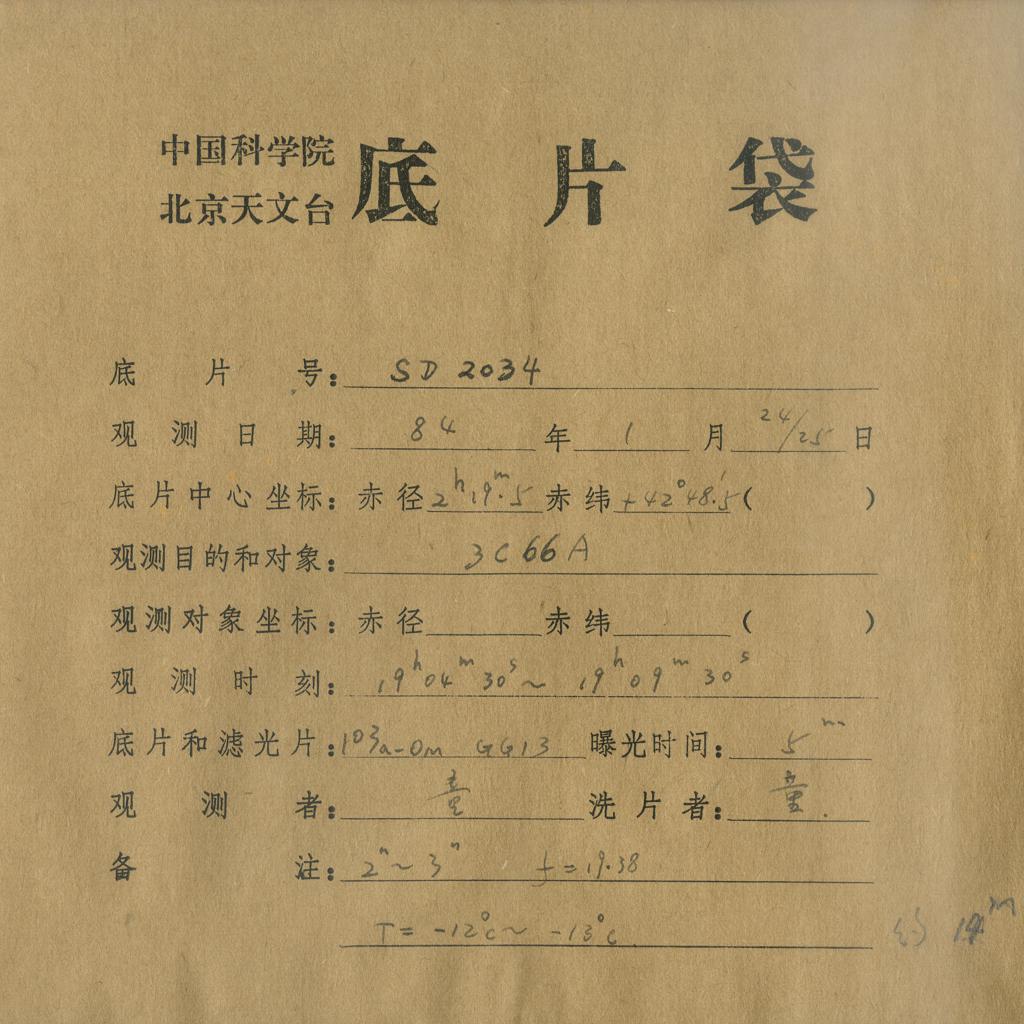 中国科学院
北京天文台
底片袋
底片号: SD 2034
观测日期: 84年1月24/25日
底片中心坐标: 赤径2ʰ19ᵐ.5赤纬+42°48′.5( )
观测目的和对象: 3C66A
观测对象坐标: 赤径 赤纬 ( )
观测时刻: 19ʰ04ᵐ30ˢ~19ʰ09ᵐ30ˢ
底片和滤光片: 103a-Om GG13 曝光时间: 5ᵐ
观测者: 童 洗片者: 童.
备注: 2"~3" f=19.38
T=-12°c~-13°c 约 14ᵐ